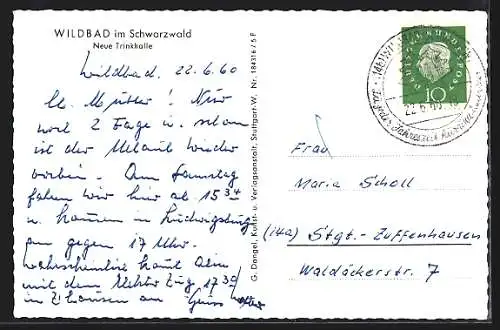 WILDBAD im Schwarzwald
Neue Trinkhalle
Wildbad, 22.6.60
Lb. Mutter! Nur
noch 2 Tage u. schon
ist der Urlaub wieder
vorbei. Am Samstag
fahren wir hier ab 15 34
u. kommen in Ludwigsburg
um gegen 17 Uhr.
Wahrscheinlich kommt
mit dem Zug 17 35
in Z'hausen an. Gruss
G. Dangel, Kunst- u. Verlagsanstalt, Stuttgart-W. Nr. 184316/5 F
DEUTSCHE BUNDESPOST
10
22.6.60
Zu jeder Jahreszeit
Frau
Maria Scholl
(14a) Stgt.-Zuffenhausen
Waldäckerstr. 7